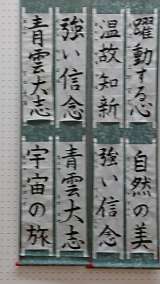 躍動する心
温故知新
強い信念
青雲大志
自然の美
強い信念
青雲大志
宇宙の旅